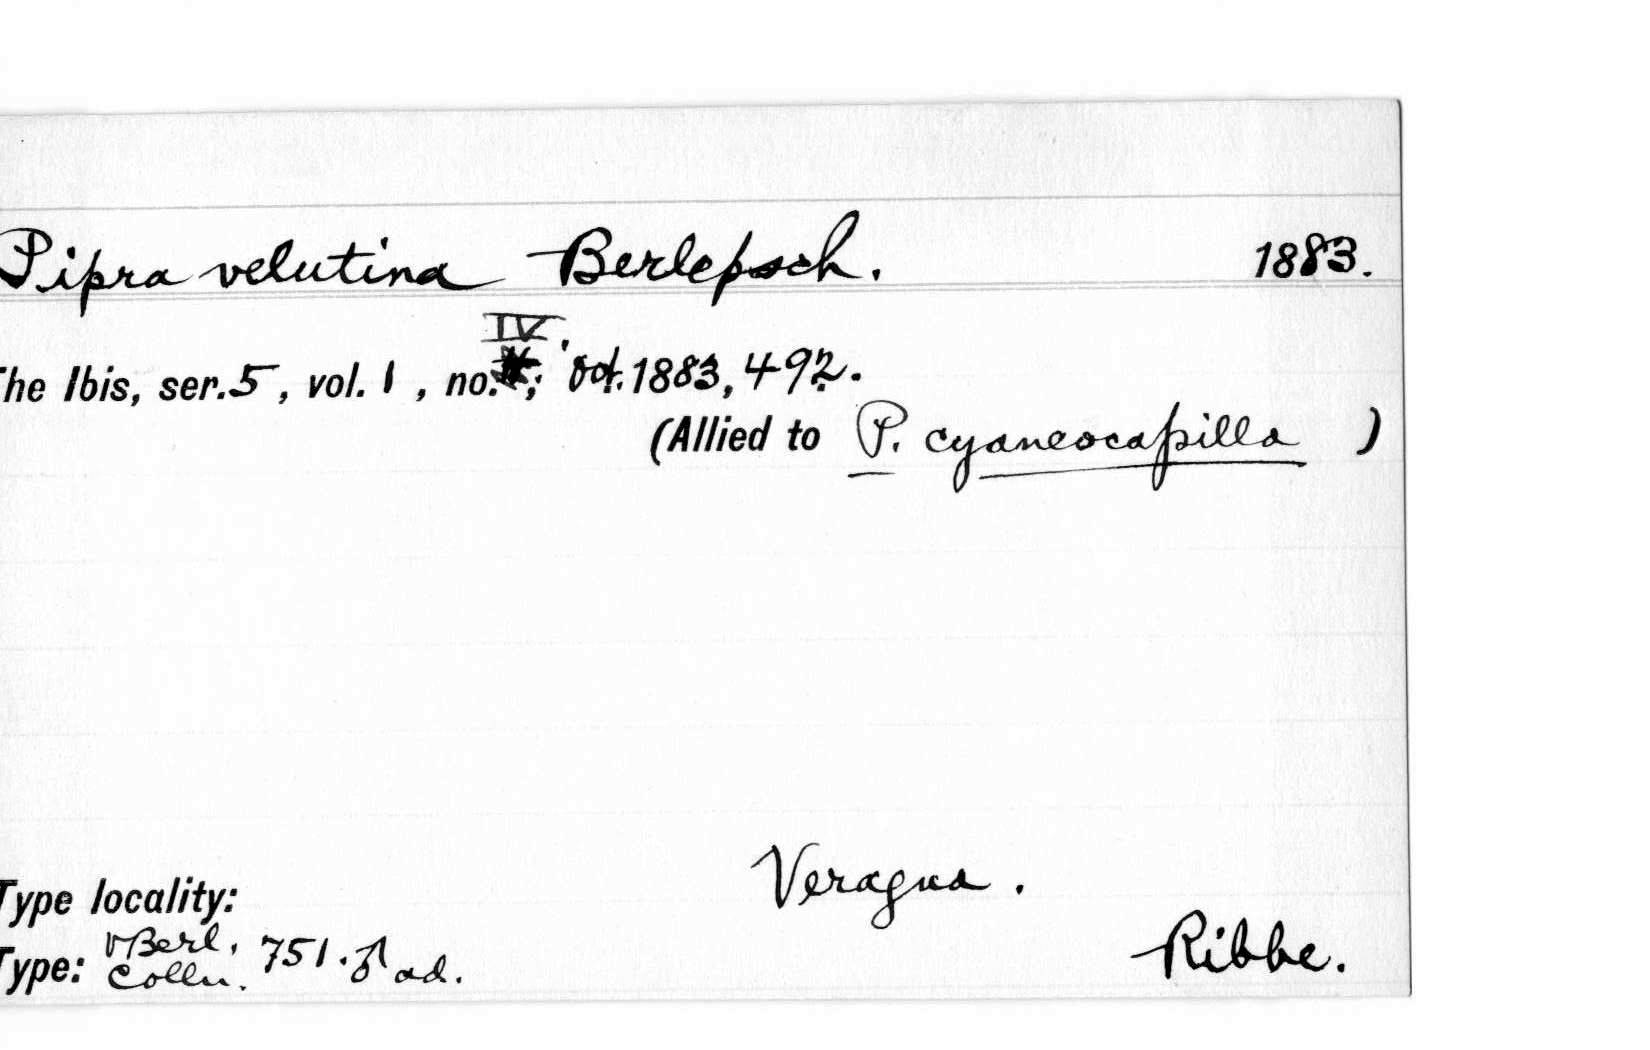 Pipra velutina Berlepsch. 1883.
IV.
he Ibis, ser. 5, vol. 1, no. ; Oct. 1883, 492.
(Allied to P. cyaneocapilla )
Type locality: Veragua.
vBerl.
Type: Colln. 751. ♂ ad. Ribbe.